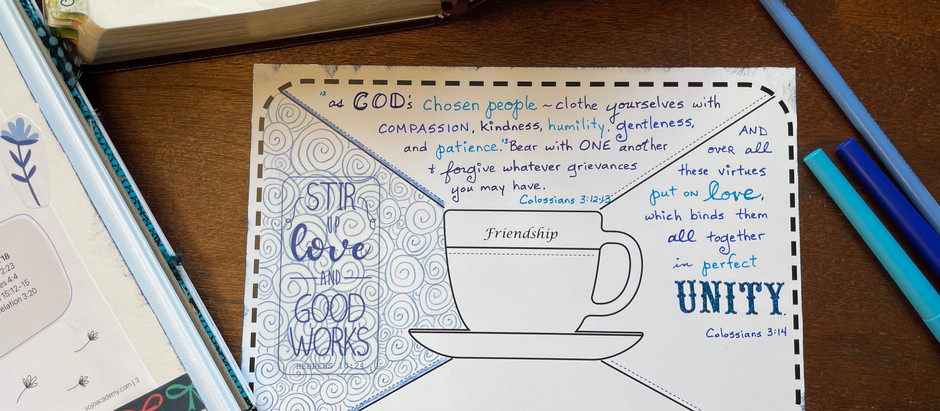 18
2:23
es 4:4
15:12-15
elation 3:20
sojoacademy.com | 3
12 as GOD's Chosen people ~ clothe yourselves with
COMPASSION, kindness, humility, gentleness,
and patience. 13 Bear with ONE another
+ forgive whatever grievances
you may have.
Colossians 3:12-13
STIR
UP
love
AND
GOOD
WORKS
HEBREWS 10:24
Friendship
AND
over all
these virtues
put on love,
which binds them
all together
in perfect
UNITY.
Colossians 3:14